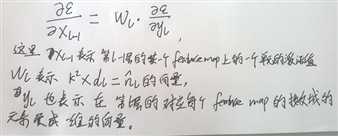 ∂ε/∂x_{l-1} = W_l · ∂ε/∂y_l
这里 ∂x_{l-1} 表示第l-1层的某个feature map上的一个
W_l 表示 k²×d_l = n̂_l 的向量,
∂y_l 也表示在第l层的对应每个 feature map 的
元素 成一维的向量。